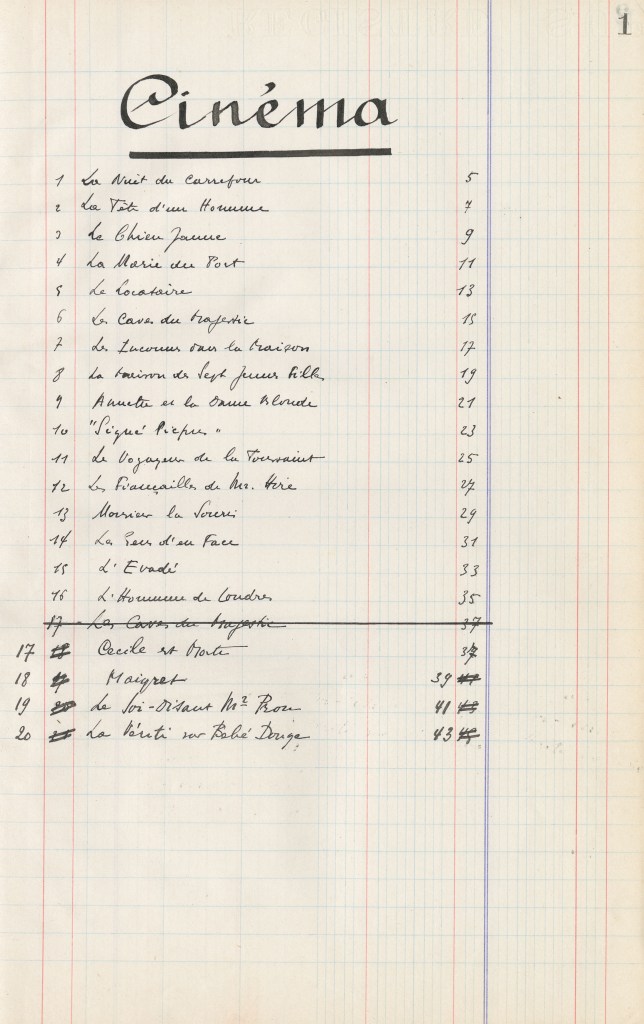 1
Cinéma
1 La Nuit du Carrefour 5
2 La Tête d'un Homme 7
3 Le Chien Jaune 9
4 La Marie du Port 11
5 Le Locataire 13
6 Les Caves du Majestic 15
7 Les Inconnus dans la Maison 17
8 La Maison des Sept Jeunes Filles 19
9 Annette et la Dame Blonde 21
10 "Signé Picpus" 23
11 Le Voyageur de la Toussaint 25
12 Les Fiançailles de Mr. Hire 27
13 Monsieur la Souris 29
14 Les Gens d'en Face 31
15 L'Evadé 33
16 L'Homme de Londres 35
17 - Les Caves du Majestic 37
17 18 Cecile est Morte 37
18 Maigret 39
19 20 Le Soi-Disant Mr Prou 41 43
20 La Vérité sur Bébé Donge 43 45